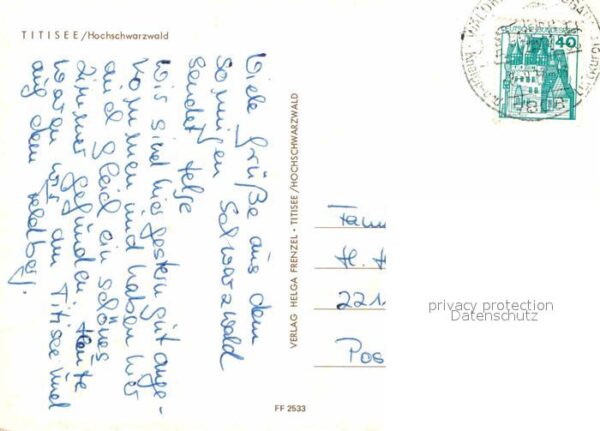 TITISEE/Hochschwarzwald
Viele Grüße aus dem
sonnigen Schwarzwald
sendet
Wir sind hier gestern gut ange-
kommen und haben hier
auch gleich ein schönes
Zimmer gefunden. Heute
waren wir am Titisee und
auf dem Feldberg.
VERLAG HELGA FRENZEL - TITISEE/HOCHSCHWARZWALD
FF 2533
40
Fam
H. H
221
Pos
privacy protection
Datenschutz